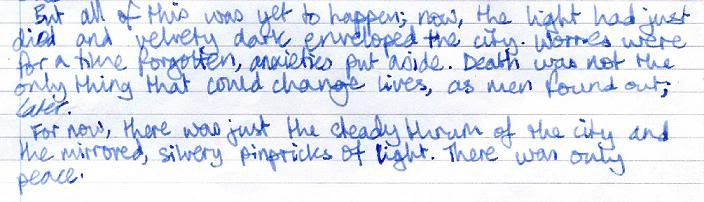 But all of this was yet to happen; now, the light had just
died and velvety dark enveloped the city. Worries were
for a time forgotten, anxieties put aside. Death was not the
only thing that could change lives, as men found out,
later.
For now, there was just the steady thrum of the city and
the mirrored, silvery pinpricks of light. There was only
peace.